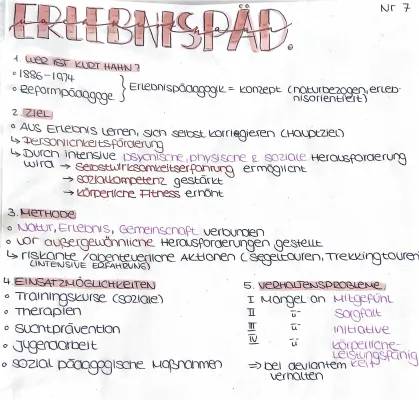 ERLEBNISPÄD.
Nr 7
1. WER IST KURT HAHN?
◦ 1886-1974
◦ Reformpädagoge
} Erlebnispädagogik = Konzept (naturbezogen, erleb-
nisorientiert)
2. ZIEL
◦ AUS Erlebnis lernen, sich selbst korrigieren (Hauptziel)
↳ Persönlichkeitsförderung
↳ Durch intensive psychische, physische & soziale Herausforderung
wird → Selbstwirksamkeitserfahrung ermöglicht
→ Sozialkompetenz gestärkt
→ Körperliche Fitness erhöht
3. METHODE
◦ Natur, Erlebnis, Gemeinschaft verbunden
◦ vor außergewöhnliche Herausforderungen gestellt
↳ riskante / abenteuerliche Aktionen (Segeltouren, Trekkingtouren)
(INTENSIVE ERFAHRUNG)
4. EINSATZMÖGLICHKEITEN
◦ Trainingskurse (soziale)
◦ Therapien
◦ Suchtprävention
◦ Jugendarbeit
◦ sozial pädagogische Maßnahmen
5. VERHALTENSPROBLEME
I Mangel an Mitgefühl
II -"- Sorgfalt
III -"- Initiative
IV -"- körperliche
Leistungsfähig
keit
⇒ bei deviantem
verhalten